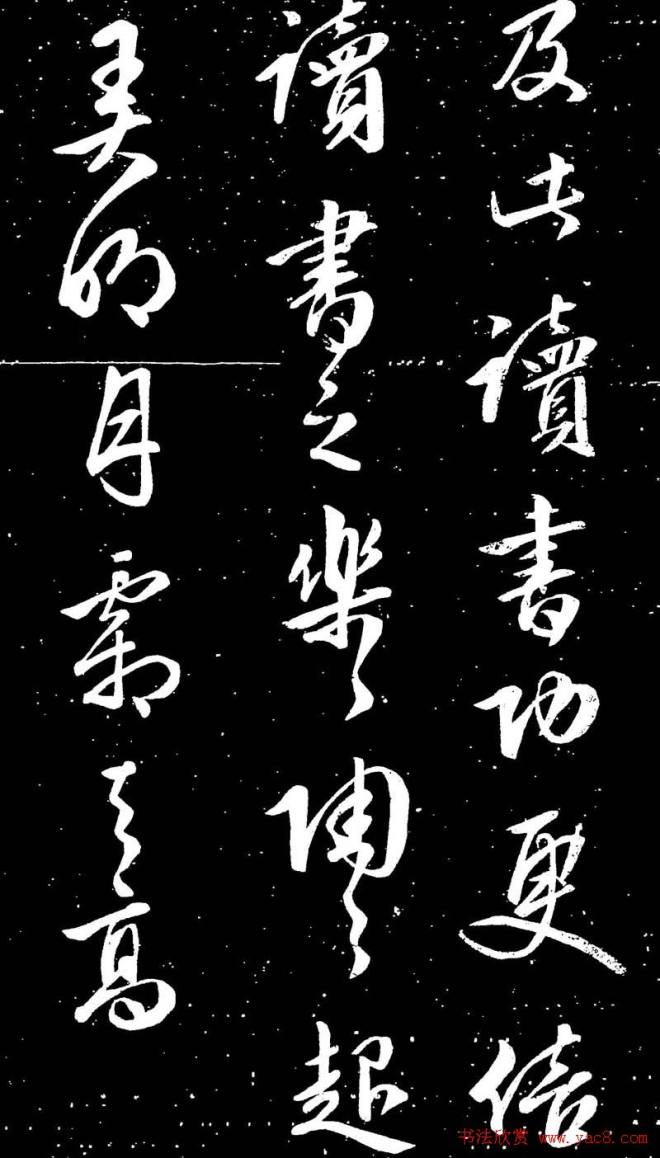 及此讀書功更倍
讀書之樂々陶々起
弄明月霜天高
书法欣赏 www.yac8.com